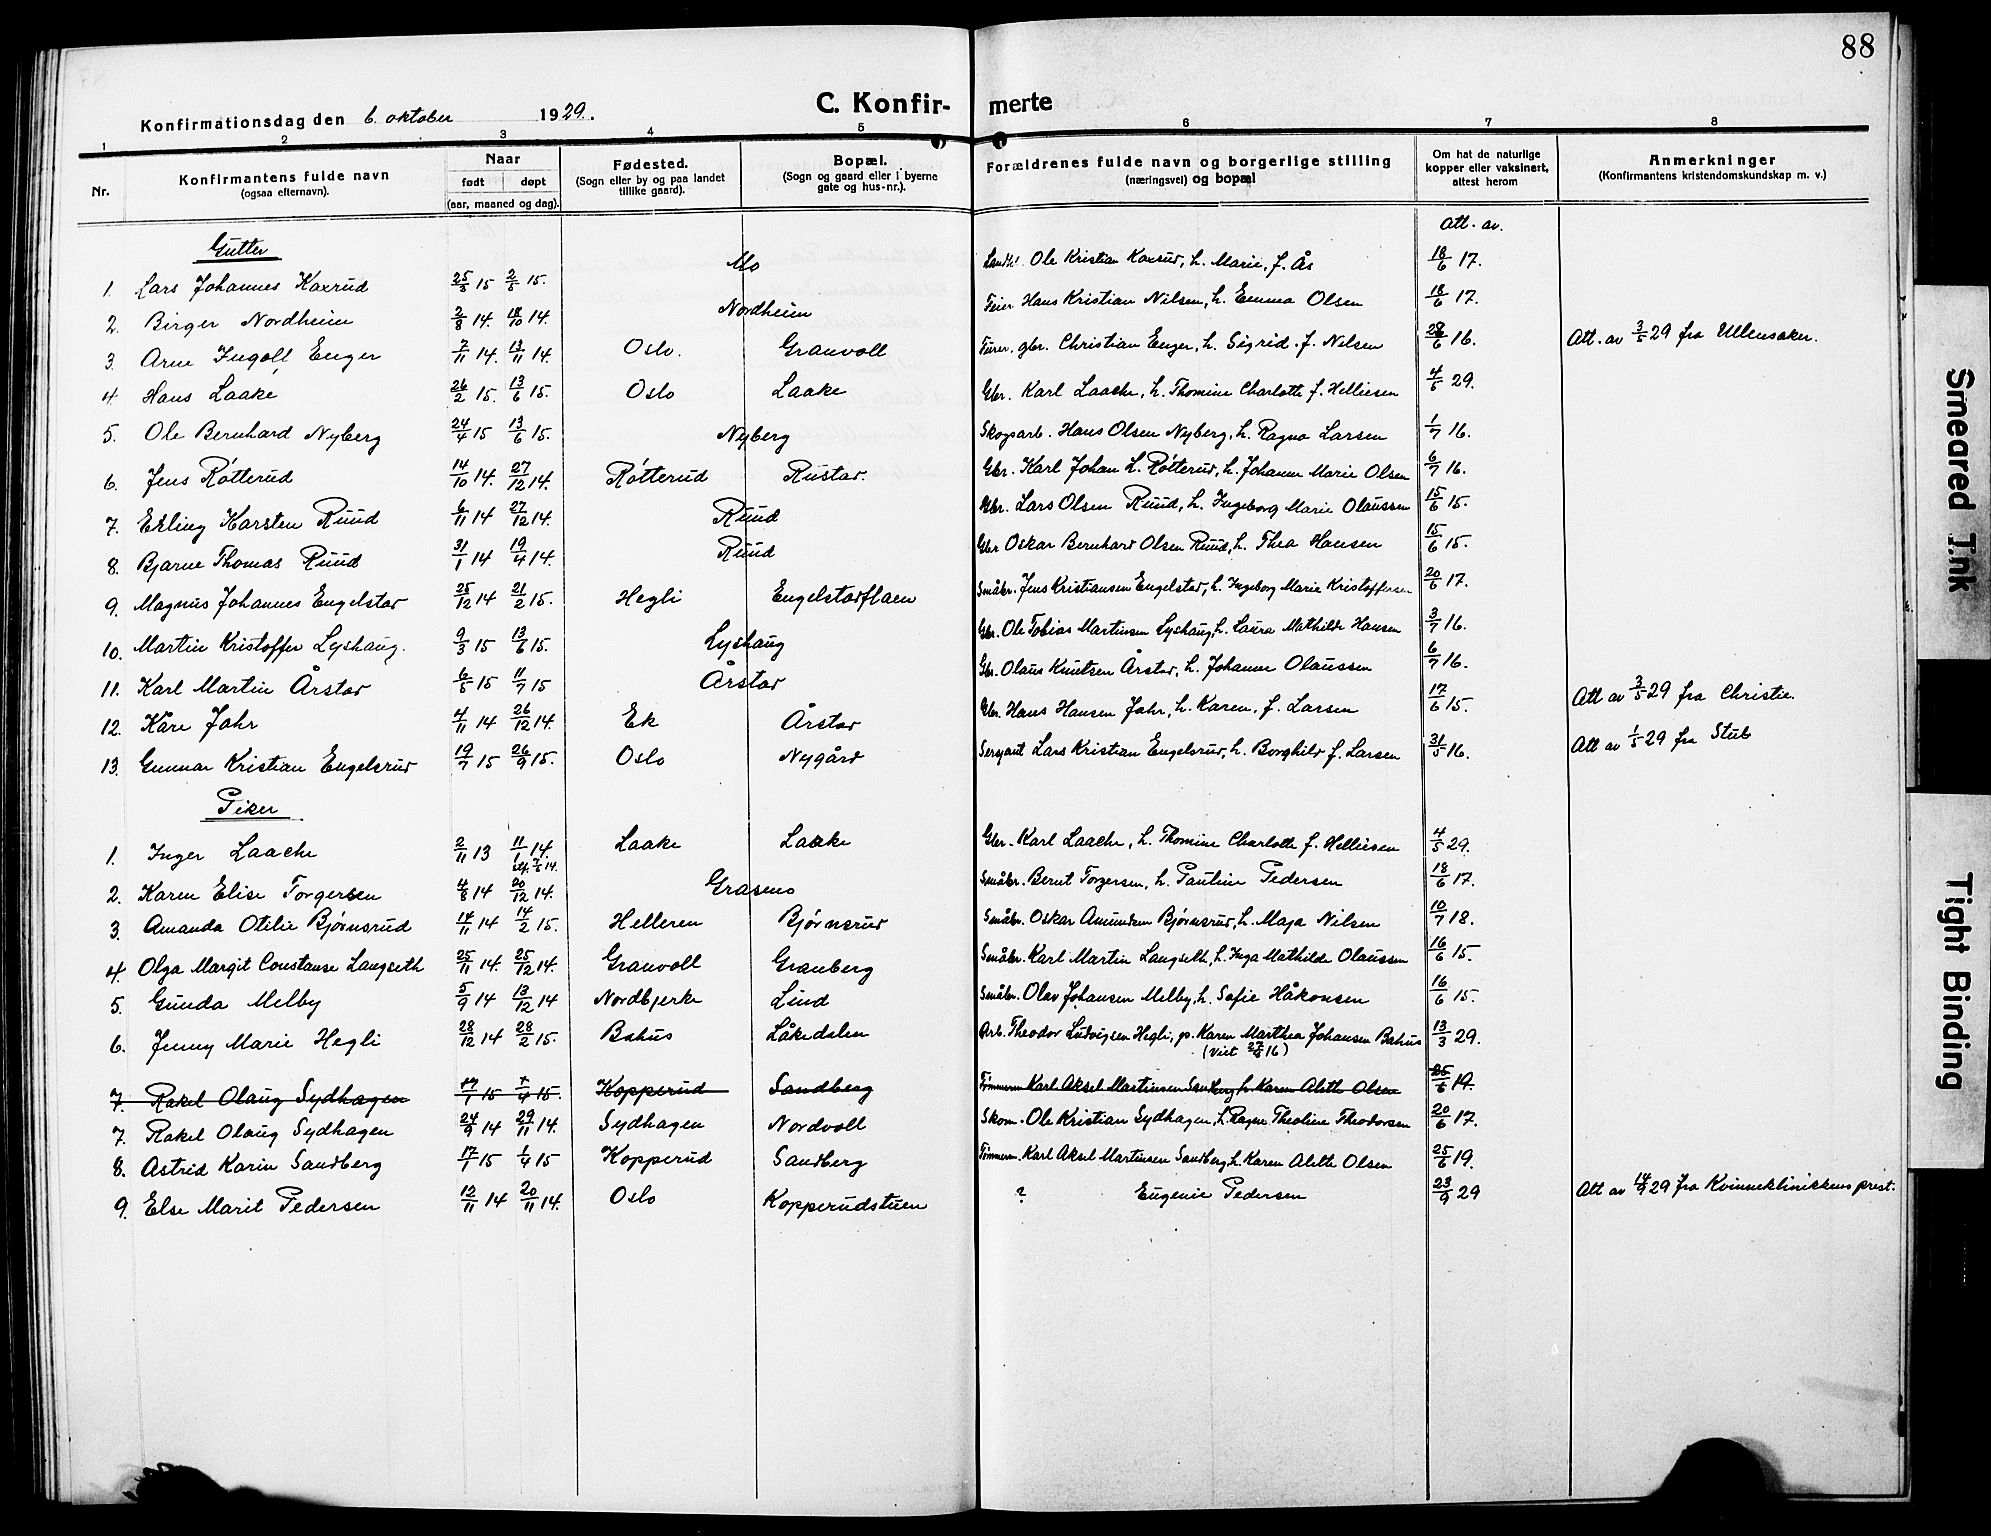 88
C. Konfir- merte
Konfirmationsdag den 6. oktober 1929.
1 2 3 4 5 6 7 8
Nr. | Konfirmantens fulde navn (ogsaa efternavn). | Naar født døpt (aar, maaned og dag). | Fødested. (Sogn eller by og paa landet tillike gaard). | Bopæl. (Sogn og gaard eller i byerne gate og hus-nr.). | Forældrenes fulde navn og borgerlige stilling (næringsvei) og bopæl | Om hat de naturlige kopper eller vaksinert, attest herom | Anmerkninger (Konfirmantens kristendomskundskap m. v.)
Att. av.
Gutter
1. Lars Johannes Kaxrud 25/3 15 2/5 15. Mo Landh. Ole Kristian Kaxrud, h. Marie, f. Ås 18/6 17.
2. Birger Nordheim 2/8 14. 18/10 14. Nordheim Feier Hans Kristian Nilsen, h. Emma Olsen 18/6 17.
3. Arne Ingolf Enger 7/11 14. 13/11 14. Oslo. Granvoll gbr. Christian Enger, h. Sigrid f. Nilsen 28/6 16. Att. av 3/5 29 fra Ullensaker.
4. Hans Laake 26/2 15. 13/6 15. Oslo Laake Gbr. Karl Laache, h. Thomine Charlotte f. Helliesen 4/5 29.
5. Ole Bernhard Nyberg 24/4 15 13/6 15. Nyberg Skogsarb. Hans Olsen Nyberg, h. Ragna Larsen 1/7 16.
6. Jens Røtterud 14/10 14. 27/12 14. Røtterud Rustad. Gbr. Karl Johan L. Røtterud, h. Johanne Marie Olsen 6/7 16.
7. Erling Karsten Ruud 6/11 14 27/12 14. Ruud Gbr. Lars Olsen Ruud, h. Ingeborg Marie Olaussen 15/6 15.
8. Bjarne Thomas Ruud 31/1 14 19/4 14. Ruud Gbr Oskar Bernhard Olsen Ruud, h. Thea Hansen 15/6 15.
9. Magnus Johannes Engelstad 25/12 14 21/2 15. Hegli Engelstadflaen Småbr. Jens Kristiansen Engelstad, h. Ingeborg Marie Kristoffersen 20/6 17.
10. Martin Kristoffer Lyshaug. 9/3 15 13/6 15. Lyshaug Gbr. Ole Tobias Martinsen Lyshaug, h. Laura Mathilde Hansen 3/7 16.
11. Karl Martin Årstad 6/5 15 11/7 15 Årstad Gbr. Olaus Knutsen Årstad, h. Johanne Olaussen 6/7 16.
12. Kåre Jahr 4/11 14 26/12 14. Ek Årstad Gbr. Hans Hansen Jahr, h. Karen, f. Larsen 17/6 15. Att av 3/5 29 fra Christie.
13. Gunnar Kristian Engelsrud 19/7 15 26/9 15. Oslo Nygård Sergeant Lars Kristian Engelsrud, h. Borghild f. Larsen 31/5 16. Att av 1/5 29 fra Stub
Piker
1. Inger Laache 2/11 13 11/1 14. Laake Laake Gbr. Karl Laache, h. Thomine Charlotte f. Helliesen 4/5 29.
2. Karen Elise Torgersen 4/8 14 20/12 14. Grasmo Småbr. Bernt Torgersen, h. Pauline Pedersen 18/6 17.
3. Amanda Otilie Bjørnsrud 14/11 14 14/2 15. Helleren Bjørnsrud Småbr. Oskar Amundsen Bjørnsrud, h. Maja Nilsen 10/7 18.
4. Olga Margit Constanse Langseth 25/11 14. 25/12 14. Granvoll Granberg Småbr. Karl Martin Langseth, h. Inga Mathilde Olaussen 16/6 15.
5. Gunda Melby 5/9 14 13/12 14 Nordbjerke Lund Småbr. Olav Johansen Melby, h. Sofie Håkonsen 16/6 15.
6. Jenny Marie Hegli 28/12 14 28/2 15. Bahus Låkedalen Arb. Theodor Ludvigsen Hegli, p. Karen Marthea Johansen Bahus 13/3 29.
(Viet 27/8 16)
7. Rakel Olaug Sydhagen 17/1 15 1/4 15. Kopperud Sandberg Tømmerm Karl Aksel Martinsen Sandberg h. Karen Alette Olsen 25/6 19.
7. Rakel Olaug Sydhagen 24/9 14 29/11 14. Sydhagen Nordvoll Skom. Ole Kristian Sydhagen, h. Ragna Theoline Theodorsen 20/6 17.
8. Astrid Karin Sandberg 17/1 15 1/4 15 Kopperud Sandberg Tømmerm. Karl Aksel Martinsen Sandberg, h. Karen Alette Olsen 25/6 19.
9. Else Marit Pedersen 12/11 14 20/11 14. Oslo Kopperudstuen ? Eugenie Pedersen 23/9 29 Att av 14/9 29 fra Kvinneklinikkens prest.
Smeared Ink
Tight Binding